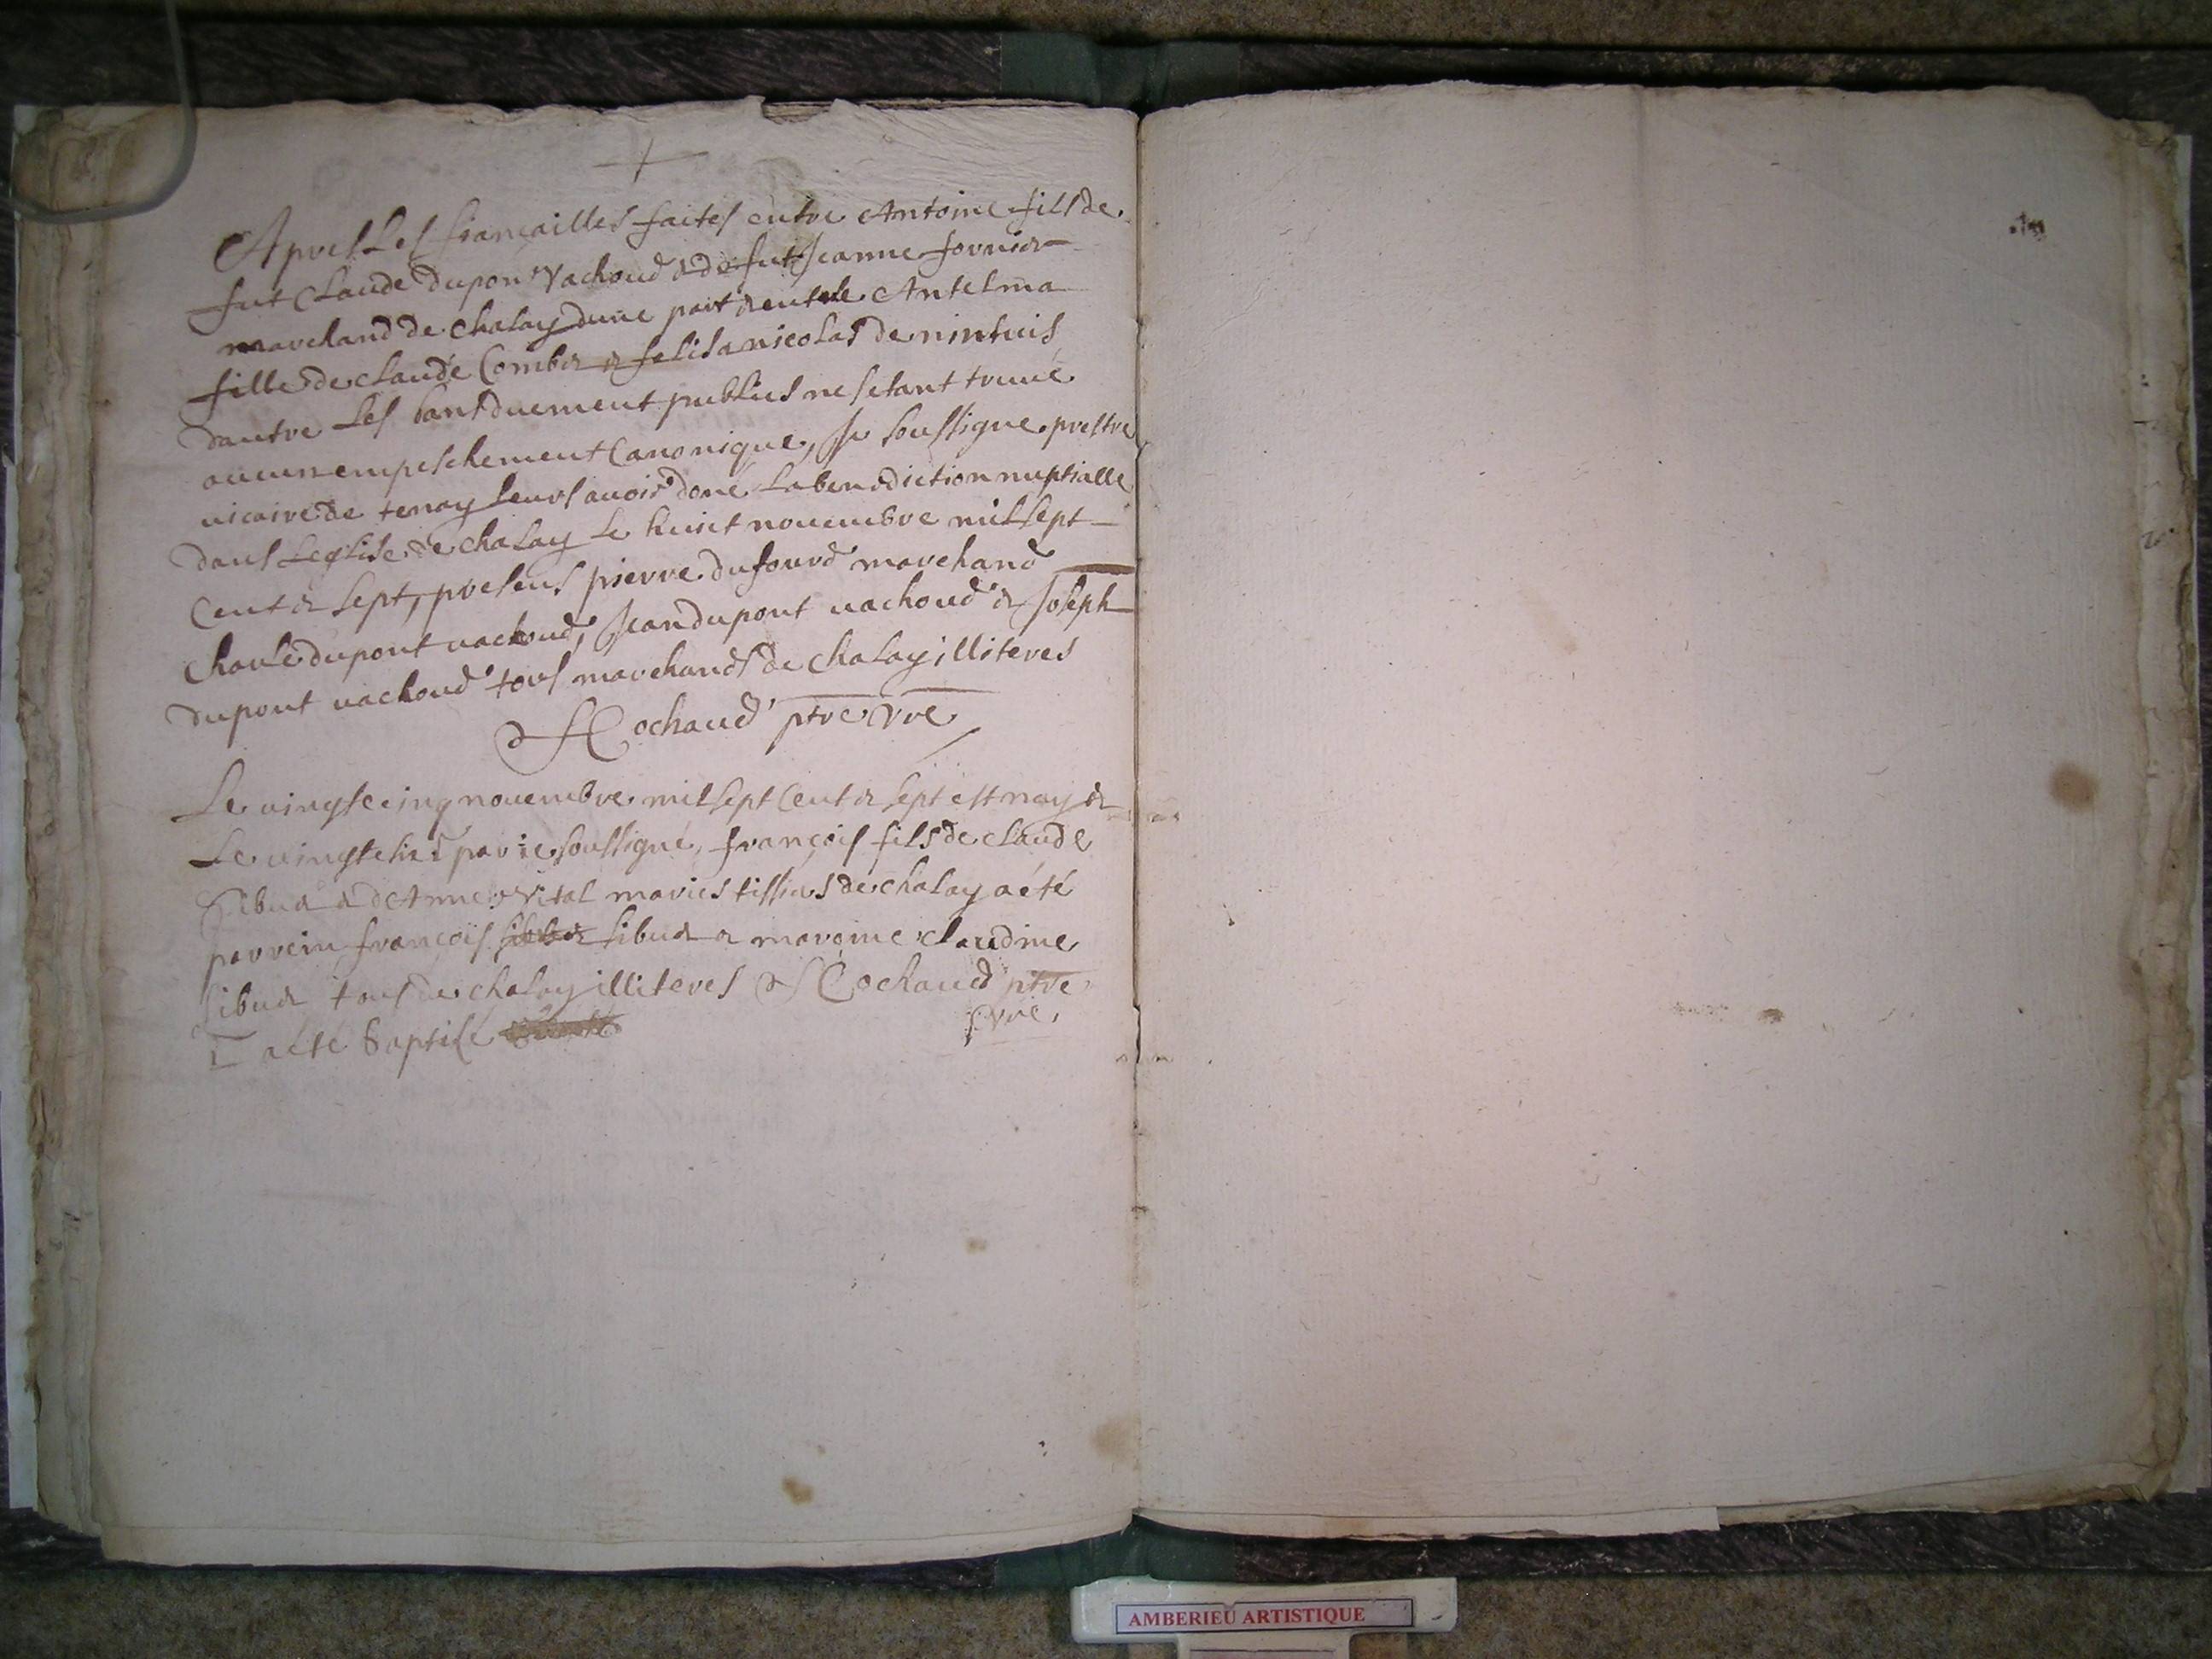 +
Apres les fiançailles faites entre Antoine fils de
fut Claude dupont Vachoud & de fut Jeanne fornier
marchand de chaley dune part & entre Antelma
fille de claude Combet & felisa nicolas de
dautre les bans duement publies ne setant trouvé
aucun empeschement Canonique, Je soussigne prestre
vicaire de tenay leurs avoir doné la benediction nuptialle
dans leglise de chaley le huict novembre mil sept
Cent & sept, presens pierre dufourd marchand
Charle dupont vachoud, Jean dupont vachoud & Joseph
dupont vachoud tous marchands de chaley illiteres
Cochaud ptre vre
Le vingt cinq novembre mil sept Cent & sept est nay &
Le vingt six par ie soussigné, françois fils de claude
Sibuet & dAnne Vital maries tissiers de chaley a été
parrein françois sibuet & maraine claudine
Sibuet tous de chaley illiteres Cochaud ptre
vre,
a été baptisé
AMBERIEU ARTISTIQUE